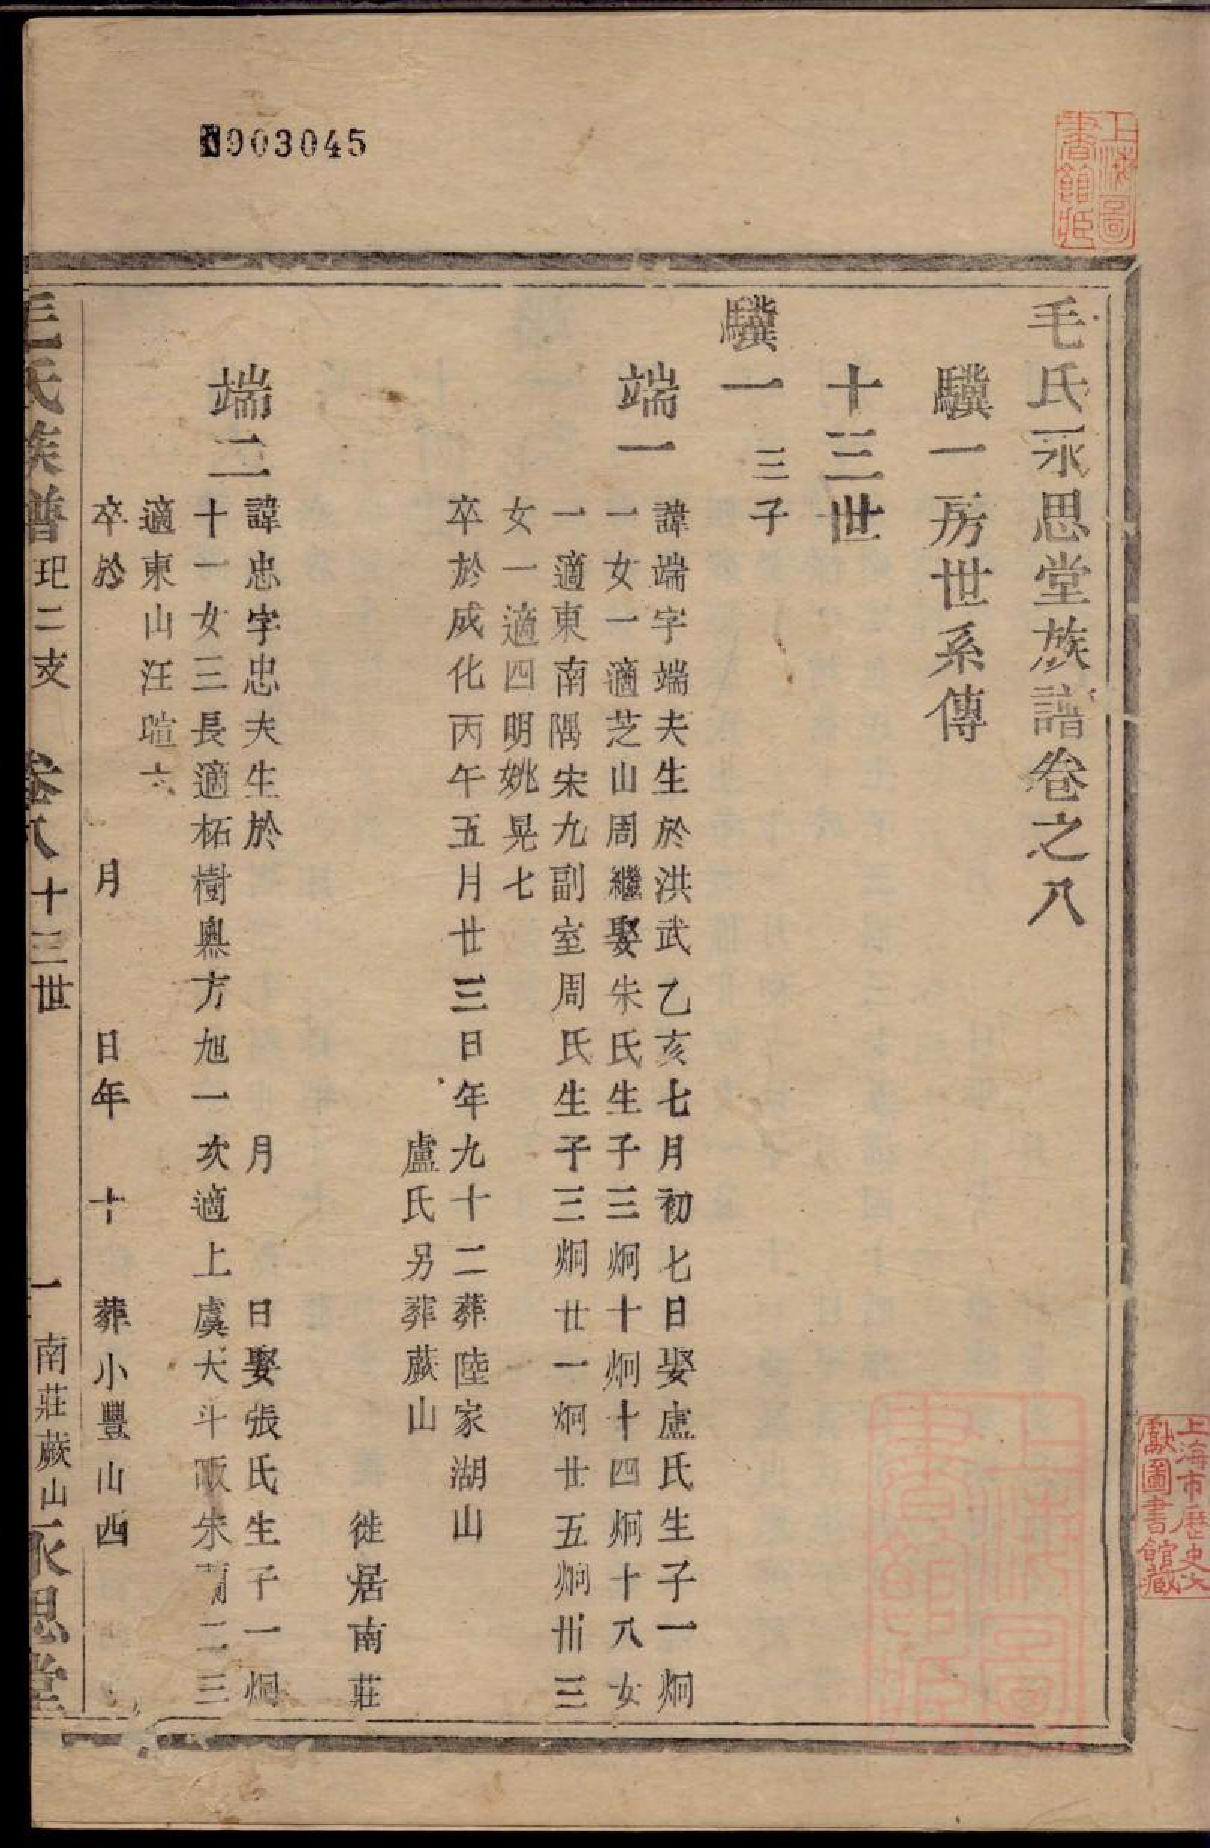 903045
上海圖書館藏
毛氏永思堂族譜卷之八
驥一房世系傳
十三世
驥一 三子
端一
諱端字端夫生於洪武乙亥七月初七日娶盧氏生子一炯
一女一適芝山周繼娶朱氏生子三炯十炯十四炯十八女
一適東南隅宋九副室周氏生子三炯廿一炯廿五炯卅三
女一適四明姚晃七
卒於成化丙午五月廿三日年九十二葬陸家湖山
盧氏另葬蕨山
徙居南莊
端二
諱忠字忠夫生於 月 日娶張氏生子一炯
十一女三長適柘樹奥方旭一次適上虞大斗畈朱蘭二三
適東山汪暄六
卒於 月 日年 十 葬小豐山西
毛氏族譜 玘二支 卷八 十三世 一 南莊蕨山 永思堂
上海圖書館藏
上海市歷史文獻圖書館藏